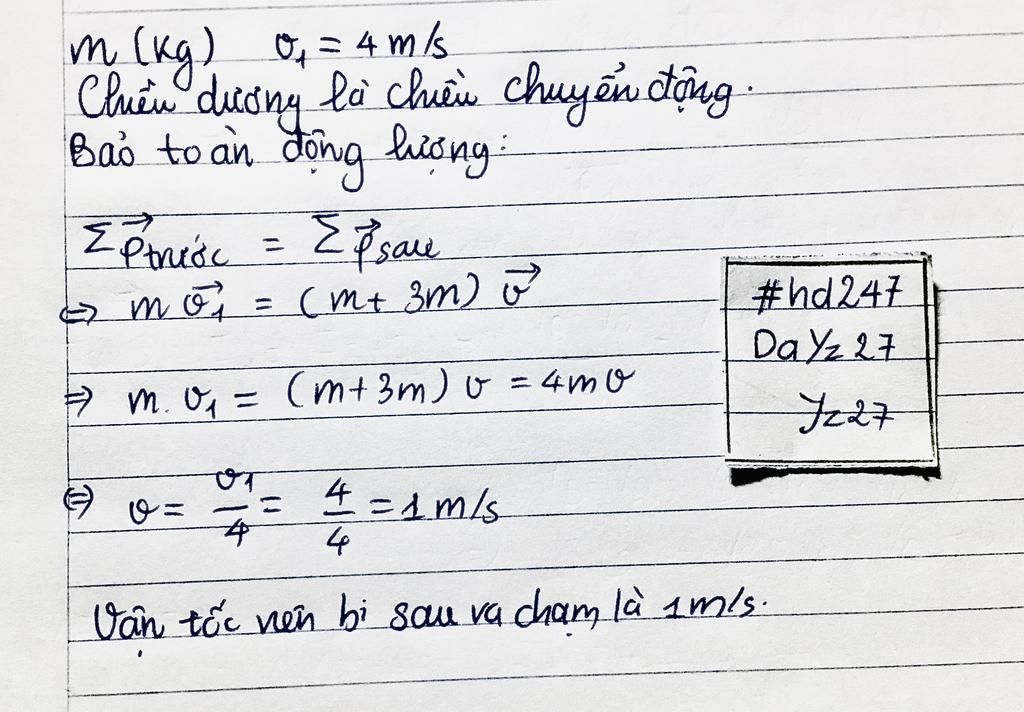 m (kg) v₁ = 4 m/s
Chiều dương là chiều chuyển động.
Bảo toàn động lượng:
Σp⃗trước = Σp⃗sau
⇔ m v⃗₁ = (m + 3m) v⃗
⇒ m. v₁ = (m + 3m) v = 4mv
⇔ v = v₁/4 = 4/4 = 1 m/s
Vận tốc viên bi sau va chạm là 1 m/s.
#hd247
DaYz27
Yz27